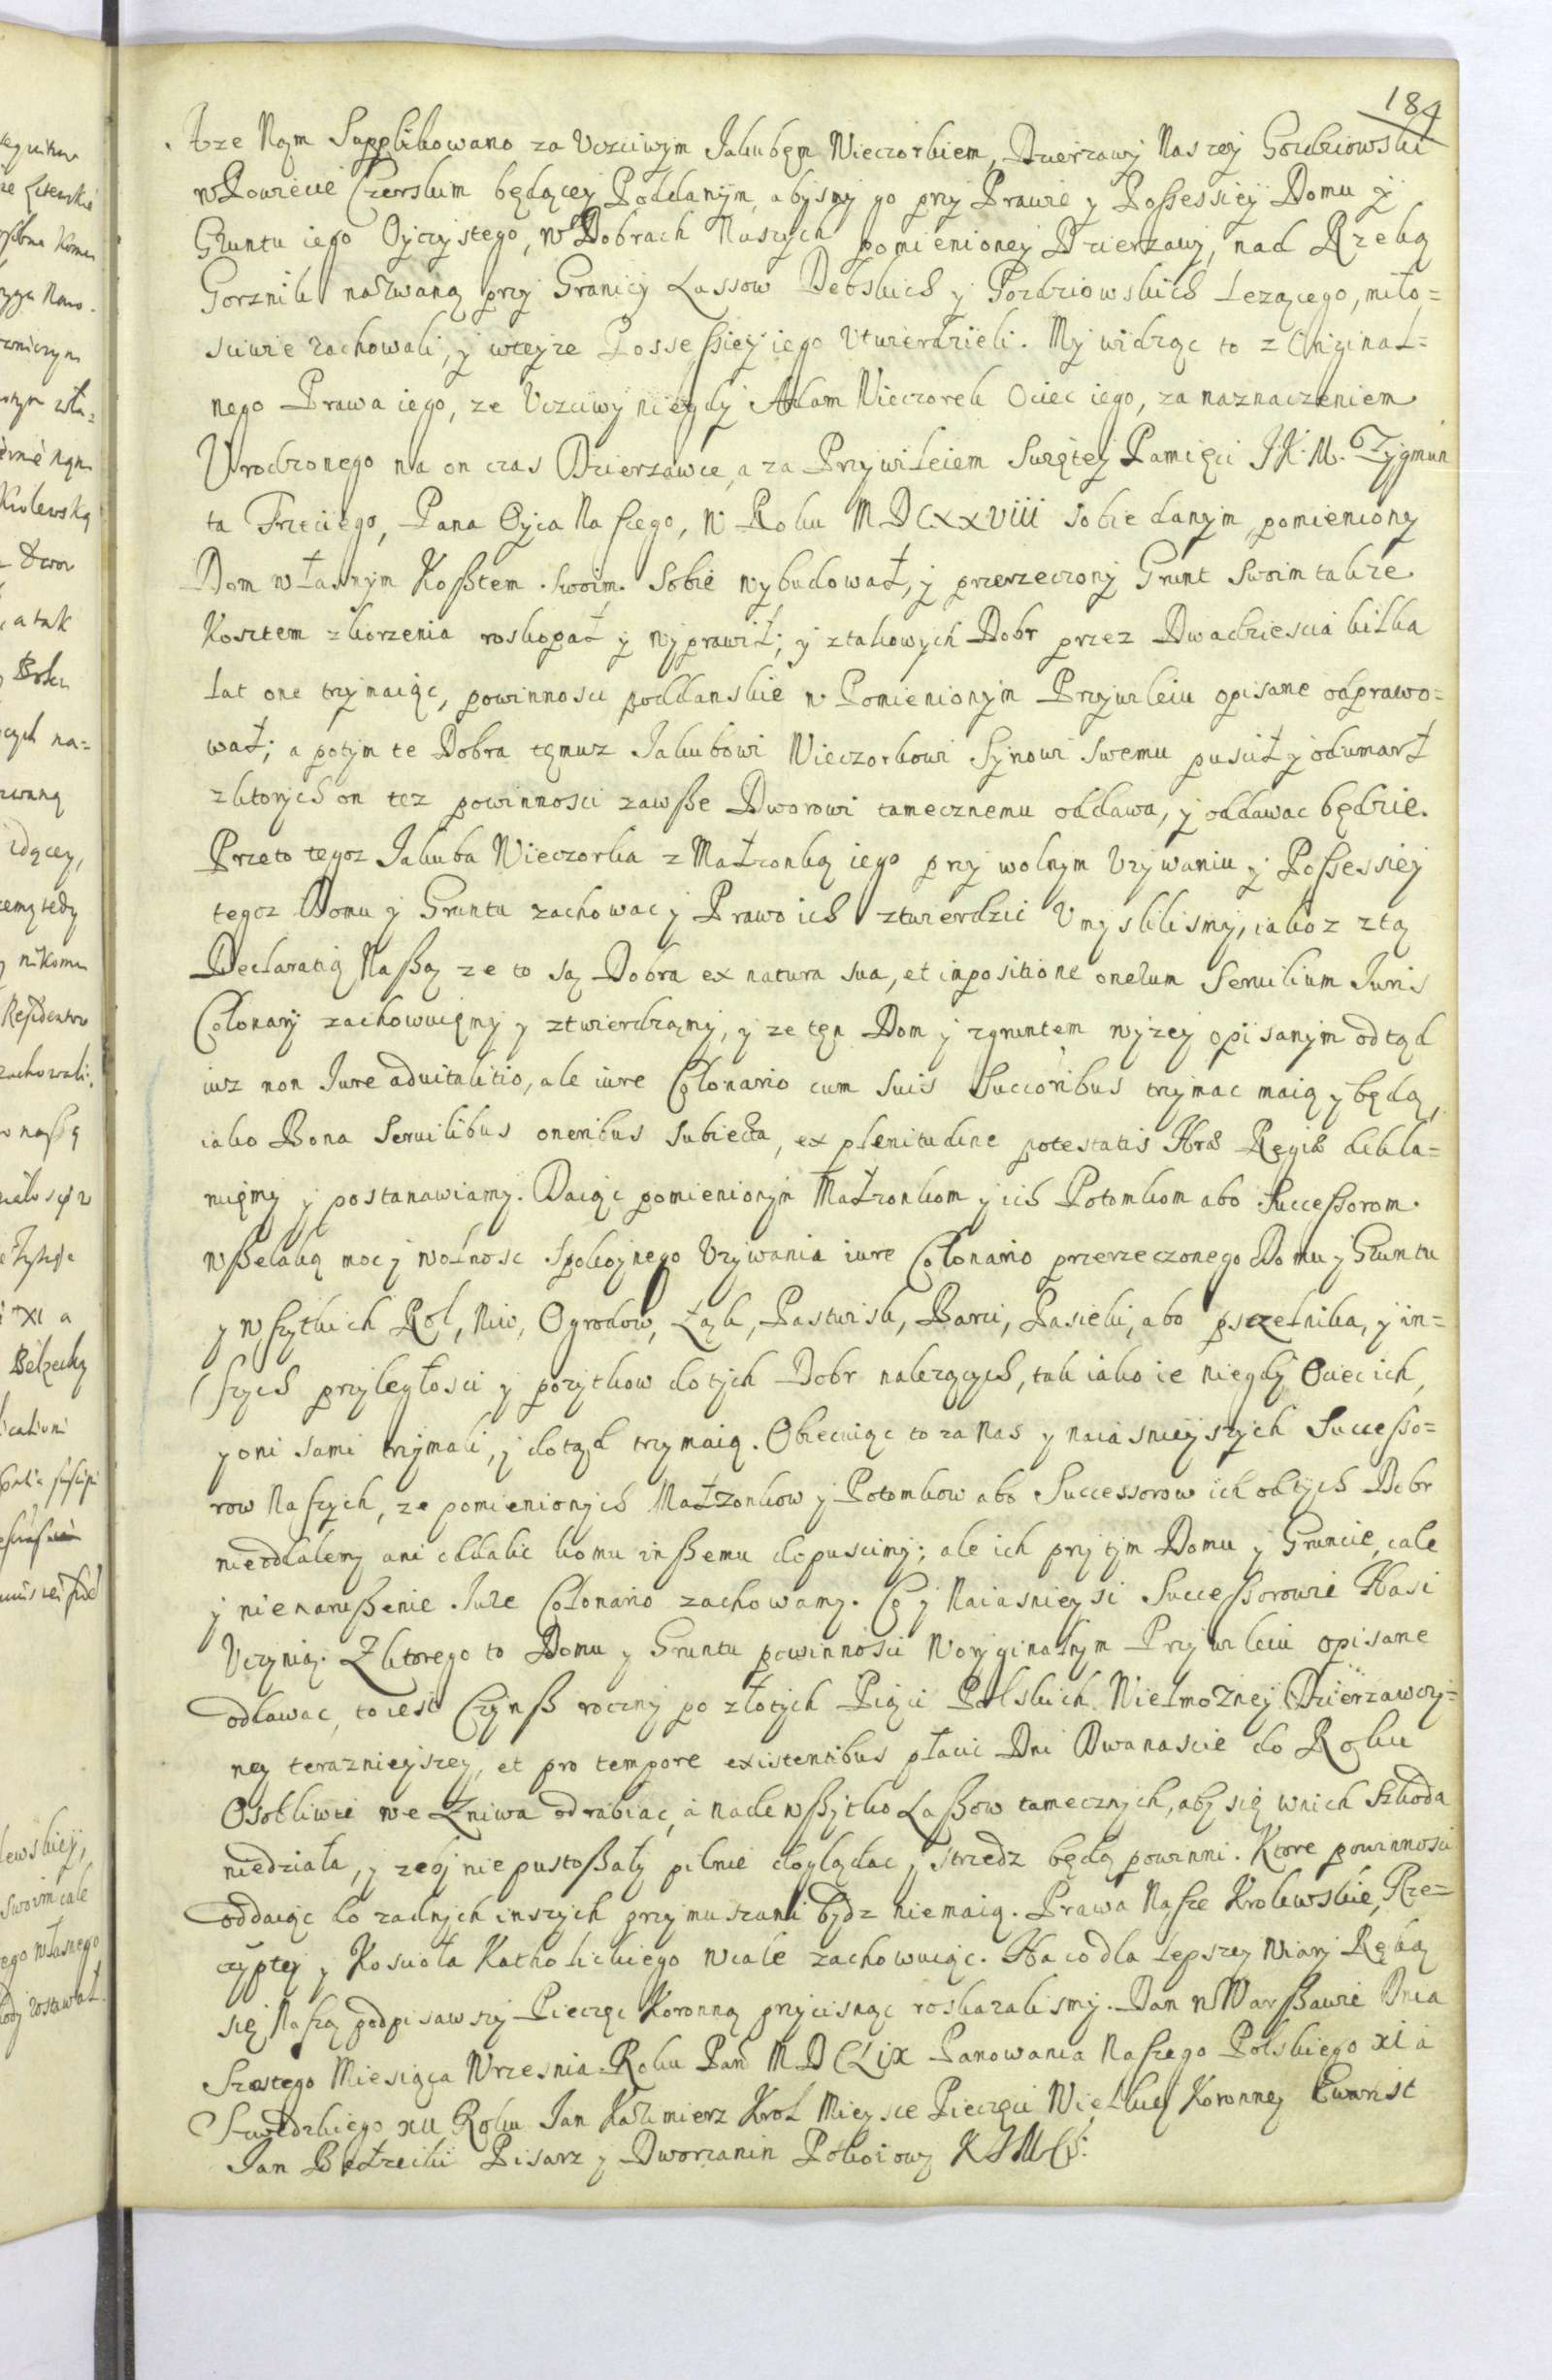 184
Iże Nąm Supplikowano za Uczciwym Jakubęm Wieczorkiem, Dzierżawy Naszey Gozdziowski
w Powiecie Czerskim będącey Poddanym, abysmy go przy Prawie y Possessiey Domu y
Gruntu iego Oyczystego, w Dobrach Naszych pomienioney Dzierzawy, nad Rzeką
Gorznik nazwaną przy Granicy Lassow Debskich y Gozdziowskich Lezącego, miło=
sciwie zachowali, y wteyze Possessiey iego Utwierdzieli. My widząc to z Original=
nego Prawa iego, ze Uczciwy niegdy Adam Wieczorek Ociec iego, za naznaczeniem
Urodzonego na on czas Dzierzawce, a za Przywileiem Swiętey Pamięci J K. M. Zygmun
ta Trzeciego, Pana Oyca Naszego, w Roku MDCXXVIII sobie danym, pomieniony
Dom własnym Kosztem swoim sobie wybudował, y przerzeczony Grunt swoim takze
Kosztem zkorzenia roskopał y wyprawił; y ztakowych Dobr przez Dwadziescia kilka
lat one trzymaiąc, powinnosci poddanskie w Pomienionym Przywileiu opisane odprawo=
wał; a potym te Dobra tęmuz Jakubowi Wieczorkowi Synowi swemu puscił y odumarł
zktorych on tez powinnosci zawsze Dworowi tamecznemu oddawa, y oddawac będzie.
Przeto tegoz Jakuba Wieczorka z Małzonką iego przy wolnym Uzywaniu y Possessiey
tegoz Domu y Gruntu zachowac y Prawo ich ztwierdzic Umyslilismy, iakoz ztą
Declaratią Naszą ze to są Dobra ex natura sua, et inpositione onerum Servilium Juris
Colonary zachowuięmy y ztwierdzamy, y ze tęn Dom y zgruntem wyzey opisanym odtąd
iuz non Jure advitalitio, ale iure Colonario cum suis Succoribus trzymac maią y będą,
iako Bona Servilibus oneribus subiecta, ex plenitudine potestatis Nrae Regiae dekla=
ruięmy y postanawiamy. Daiąc pomienionym Małzonkom y ich Potomkom abo Successorom
wszelaką moc y wolnosc spokoynego Uzywania iure Colonario przerzeczonego Domu y Gruntu
y wszytkich Rol, Niw, Ogrodow, Łąk, Pastwisk, Barci, Pasieki, abo pszczelnika, y in=
szych przyległosci y pozytkow do tych Dobr nalezących, tak iako ie niegdy Ociec ich,
y oni sami trzymali, y dotąd trzymaią. Obiecuiąc to za Nas y naiasnieyszych Successo=
row Naszych, ze pomienionych Małzonkow y Potomkow abo Successorow ich od tych Dobr
nieoddalemy ani oddalic komu inszemu dopuscimy; ale ich przy tym Domu y Gruncie, cale
y nienaruszenie Jure Colonario zachowamy. Co y Naiasnieysi Successorowie Nasi
Uczynią. Zktorego to Domu y Gruntu powinnosci Woryginalnym Przywileiu opisane
oddawac, to iest Czynsz roczny po złotych Pięci Polskich Wielmozney Dzierzawczy=
ney teraznieyszey, et pro tempore existentibus płacic Dni Dwanascie do Roku
Osobliwie we Zniwa odrabiac, a nadewszytko Laszow tamecznych, aby się wnich Szkoda
niedziała, y zeby niepustoszały pilnie doglądac y strzedz będą powinni. Ktore powinnosci
oddaiąc do zadnych inszych przymuszani bydz niemaią. Prawa Nasze Krolewskie, Rze=
czyptey y Kosciola Katholickiego wcale zachowuiąc. Na co dla lepszey Wiary Ręką
się Naszą podpisawszy Pieczęc Koronną przycisnąc roskazalismy. Dan w Warszawie Dnia
Szostego Miesiąca Wrzesnia Roku Pan MDCLIX Panowania Naszego Polskiego XI a
Szwedzkiego XII Roku Jan Kazimierz Krol Mieysce Pieczęci Wielkiey Koronney
Jan Bełzecki Pisarz y Dworzanin Pokoiowy K J M